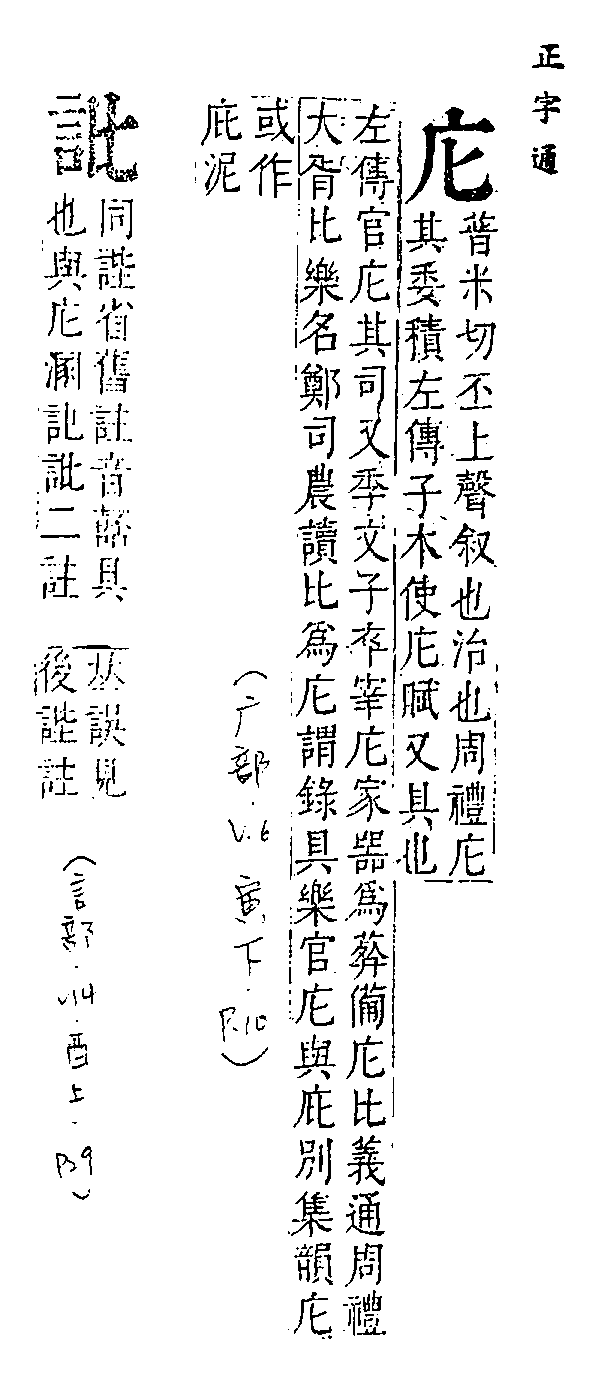 正字通
庀
普米切丕上聲叙也治也周禮庀
其委積左傳子木使庀賦又具也
左傳官庀其司又季文子卒宰庀家器爲葬備庀比義通周禮
大胥比樂名鄭司農讀比爲庀謂錄具樂官庀與庇別集韻庀
或作
庇泥
(广部.V.6 寅下.P.10)
䚹
同省舊註音具
也與庀溷二註
𠀤誤見
後註
(言部.V14.酉上.P.9)